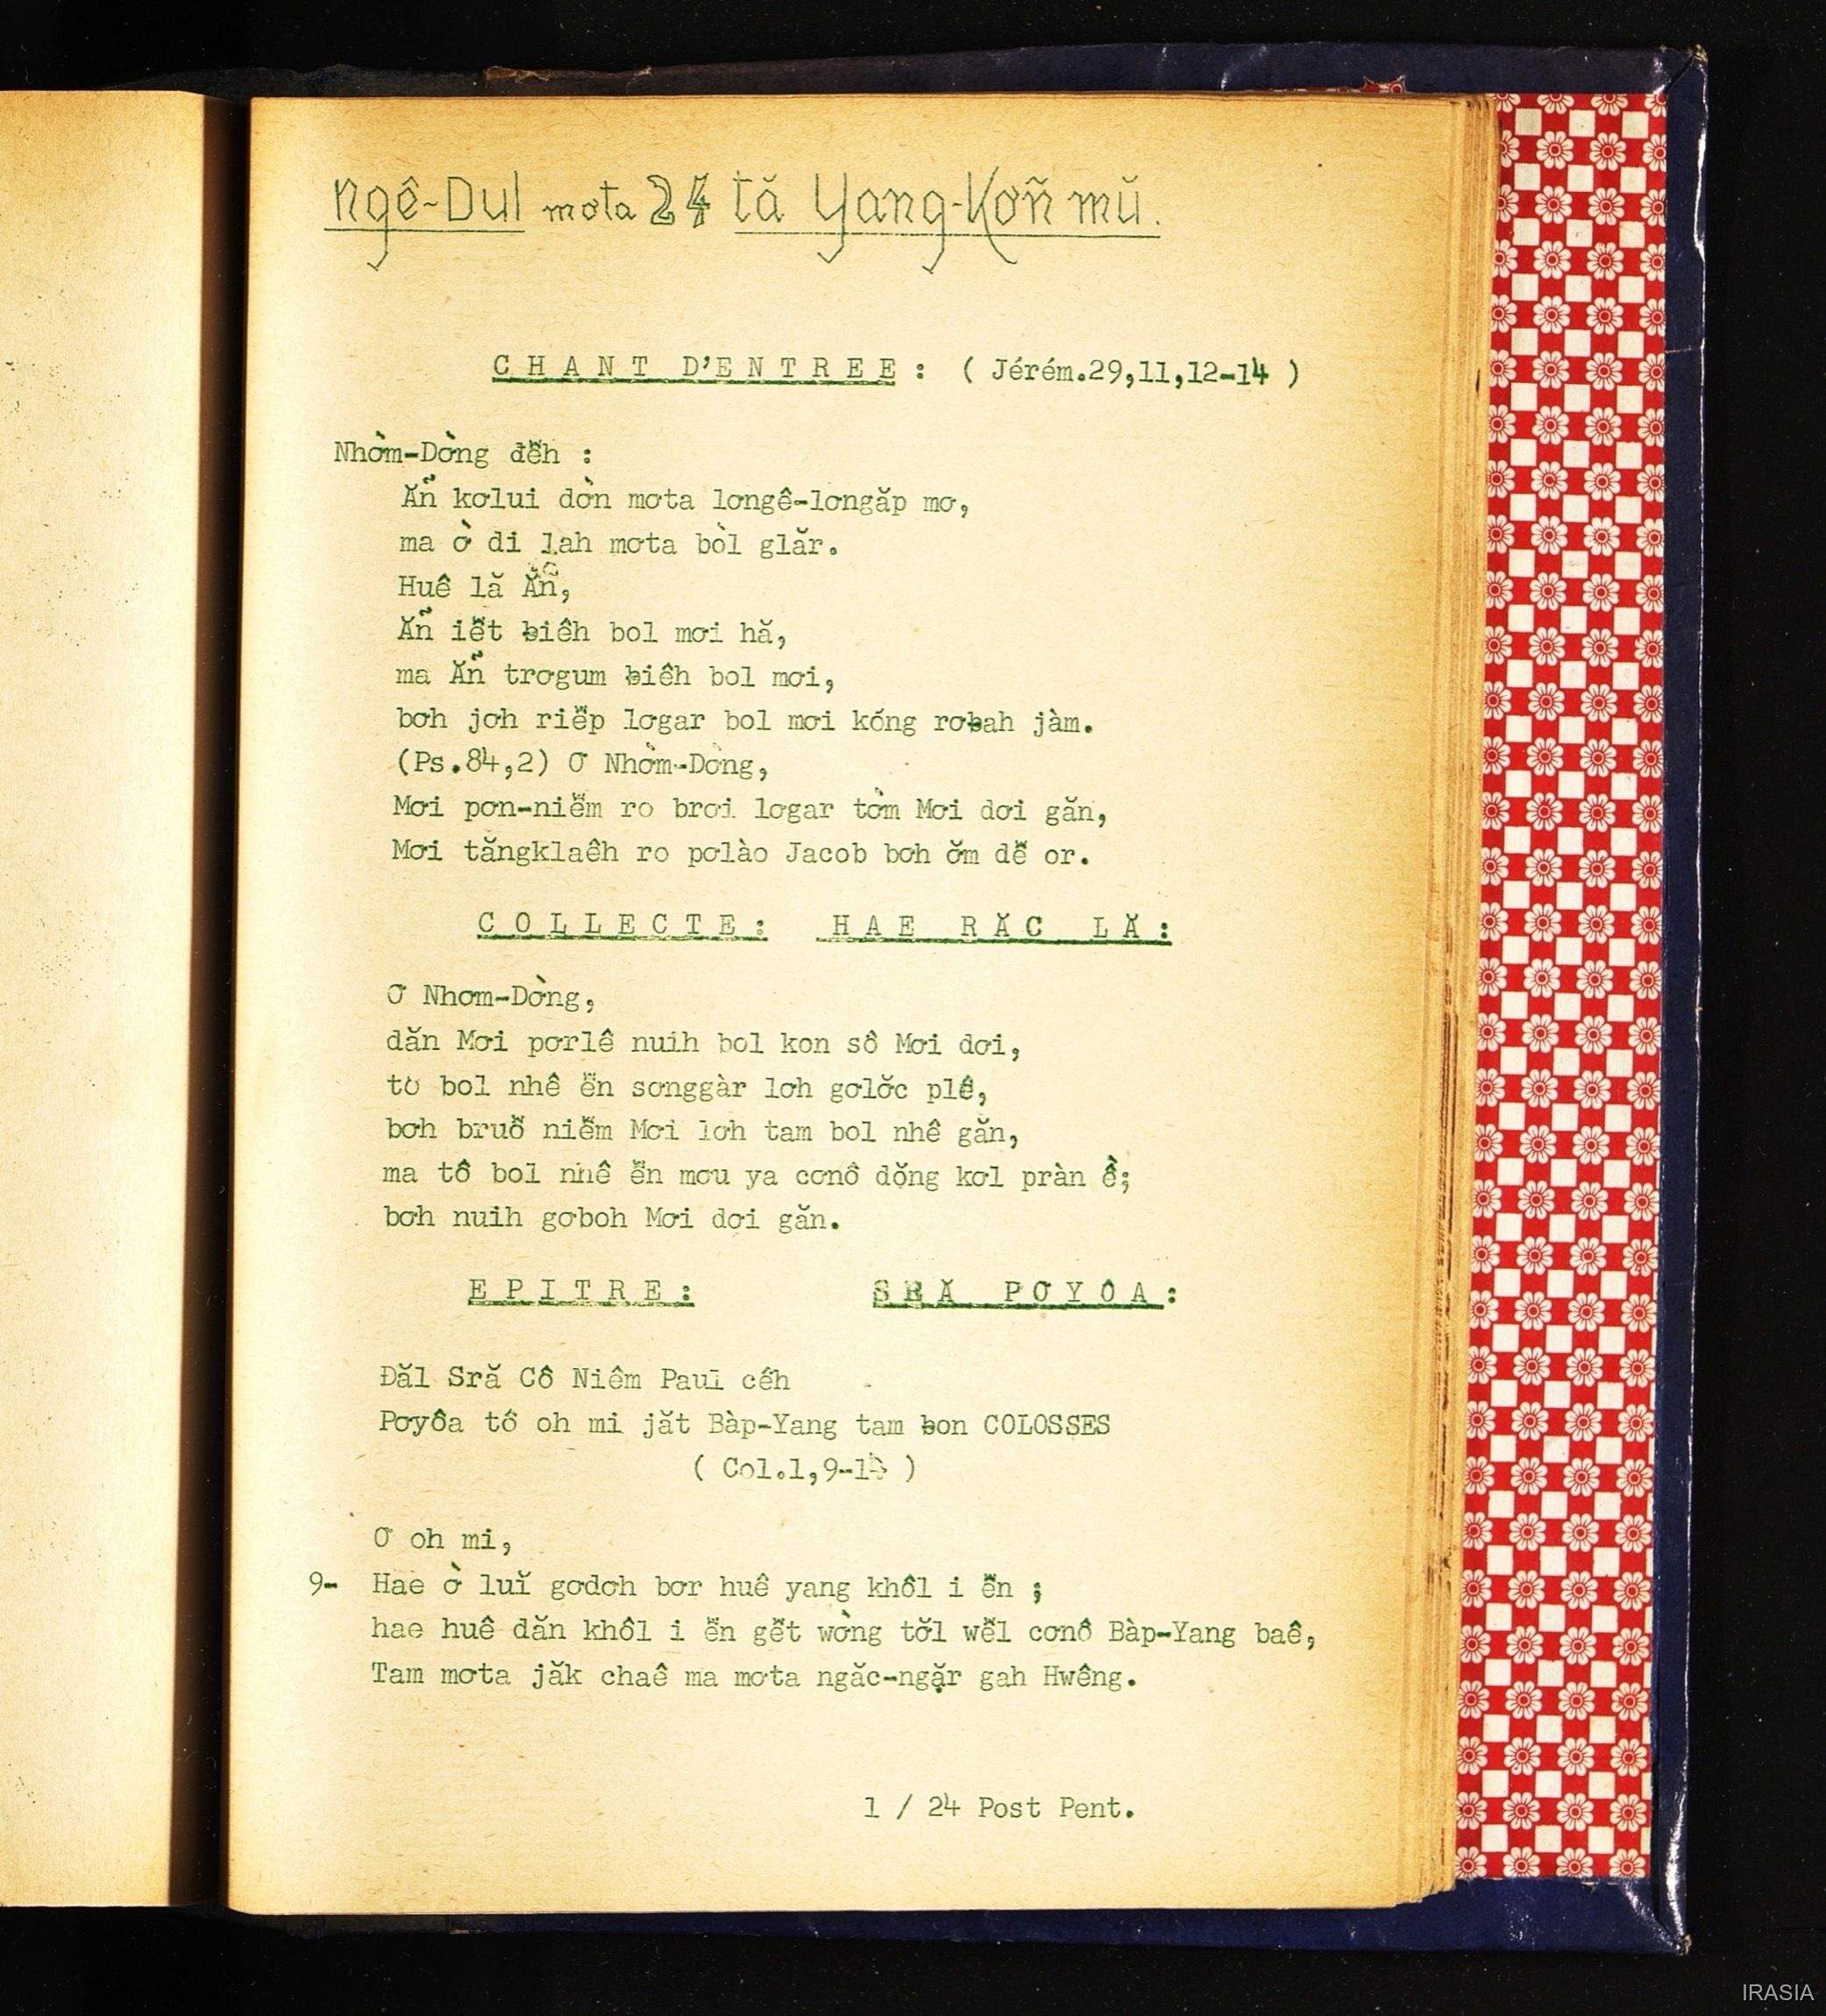 Ngê-Dul mơta 24 tă Yang-Koñ mŭ.
CHANT D'ENTREE : ( Jérém.29,11,12-14 )
Nhờm-Dờng đê̆h :
Ăñ kơlui dờn mơta lơngê-lơngăp mơ,
ma ờ di lah mơta bòl glăr.
Huê lă Ăñ,
Ăñ iê̆t ƀiêh bol mơi hă,
ma Ăñ trơgum ƀiêh bol mơi,
bơh jơh riê̆p lơgar bol mơi kŏng rơƀah jàm.
(Ps.84,2) Ơ Nhờm-Dờng,
Mơi pơn-niê̆m ro brơi lơgar tờm Mơi dơi găn,
Mơi tăngklaêh ro pơlào Jacob bơh ơ̆m dê̆ or.
COLLECTE: HAE RĂC LĂ:
Ơ Nhơm-Dờng,
dăn Mơi pơrlê nuih bol kon sô Mơi dơi,
to bol nhê ê̆n sơnggàr lơh gơlơ̆c plê,
bơh bruô̆ niê̆m Mơi lơh tam bol nhê găn,
ma tô bol nhê ê̆n mơu ya cơnô dộng kơl pràn ề;
bơh nuih gơboh Mơi dơi găn.
EPITRE: SRĂ PƠYÔA:
Đăl Sră Cô Niêm Paul cêh
Pơyôa tô oh mi jăt Bàp-Yang tam ƀon COLOSSES
( Col.1,9-14 )
Ơ oh mi,
9- Hae ờ luĭ gơdơh bơr huê yang khôl i ê̆n ;
hae huê dăn khôl i ê̆n gê̆t wờng tơ̆l wê̆l cơnô Bàp-Yang baê,
Tam mơta jăk chaê ma mơta ngăc-ngặr gah Hwêng.
1 / 24 Post Pent.
IRASIA